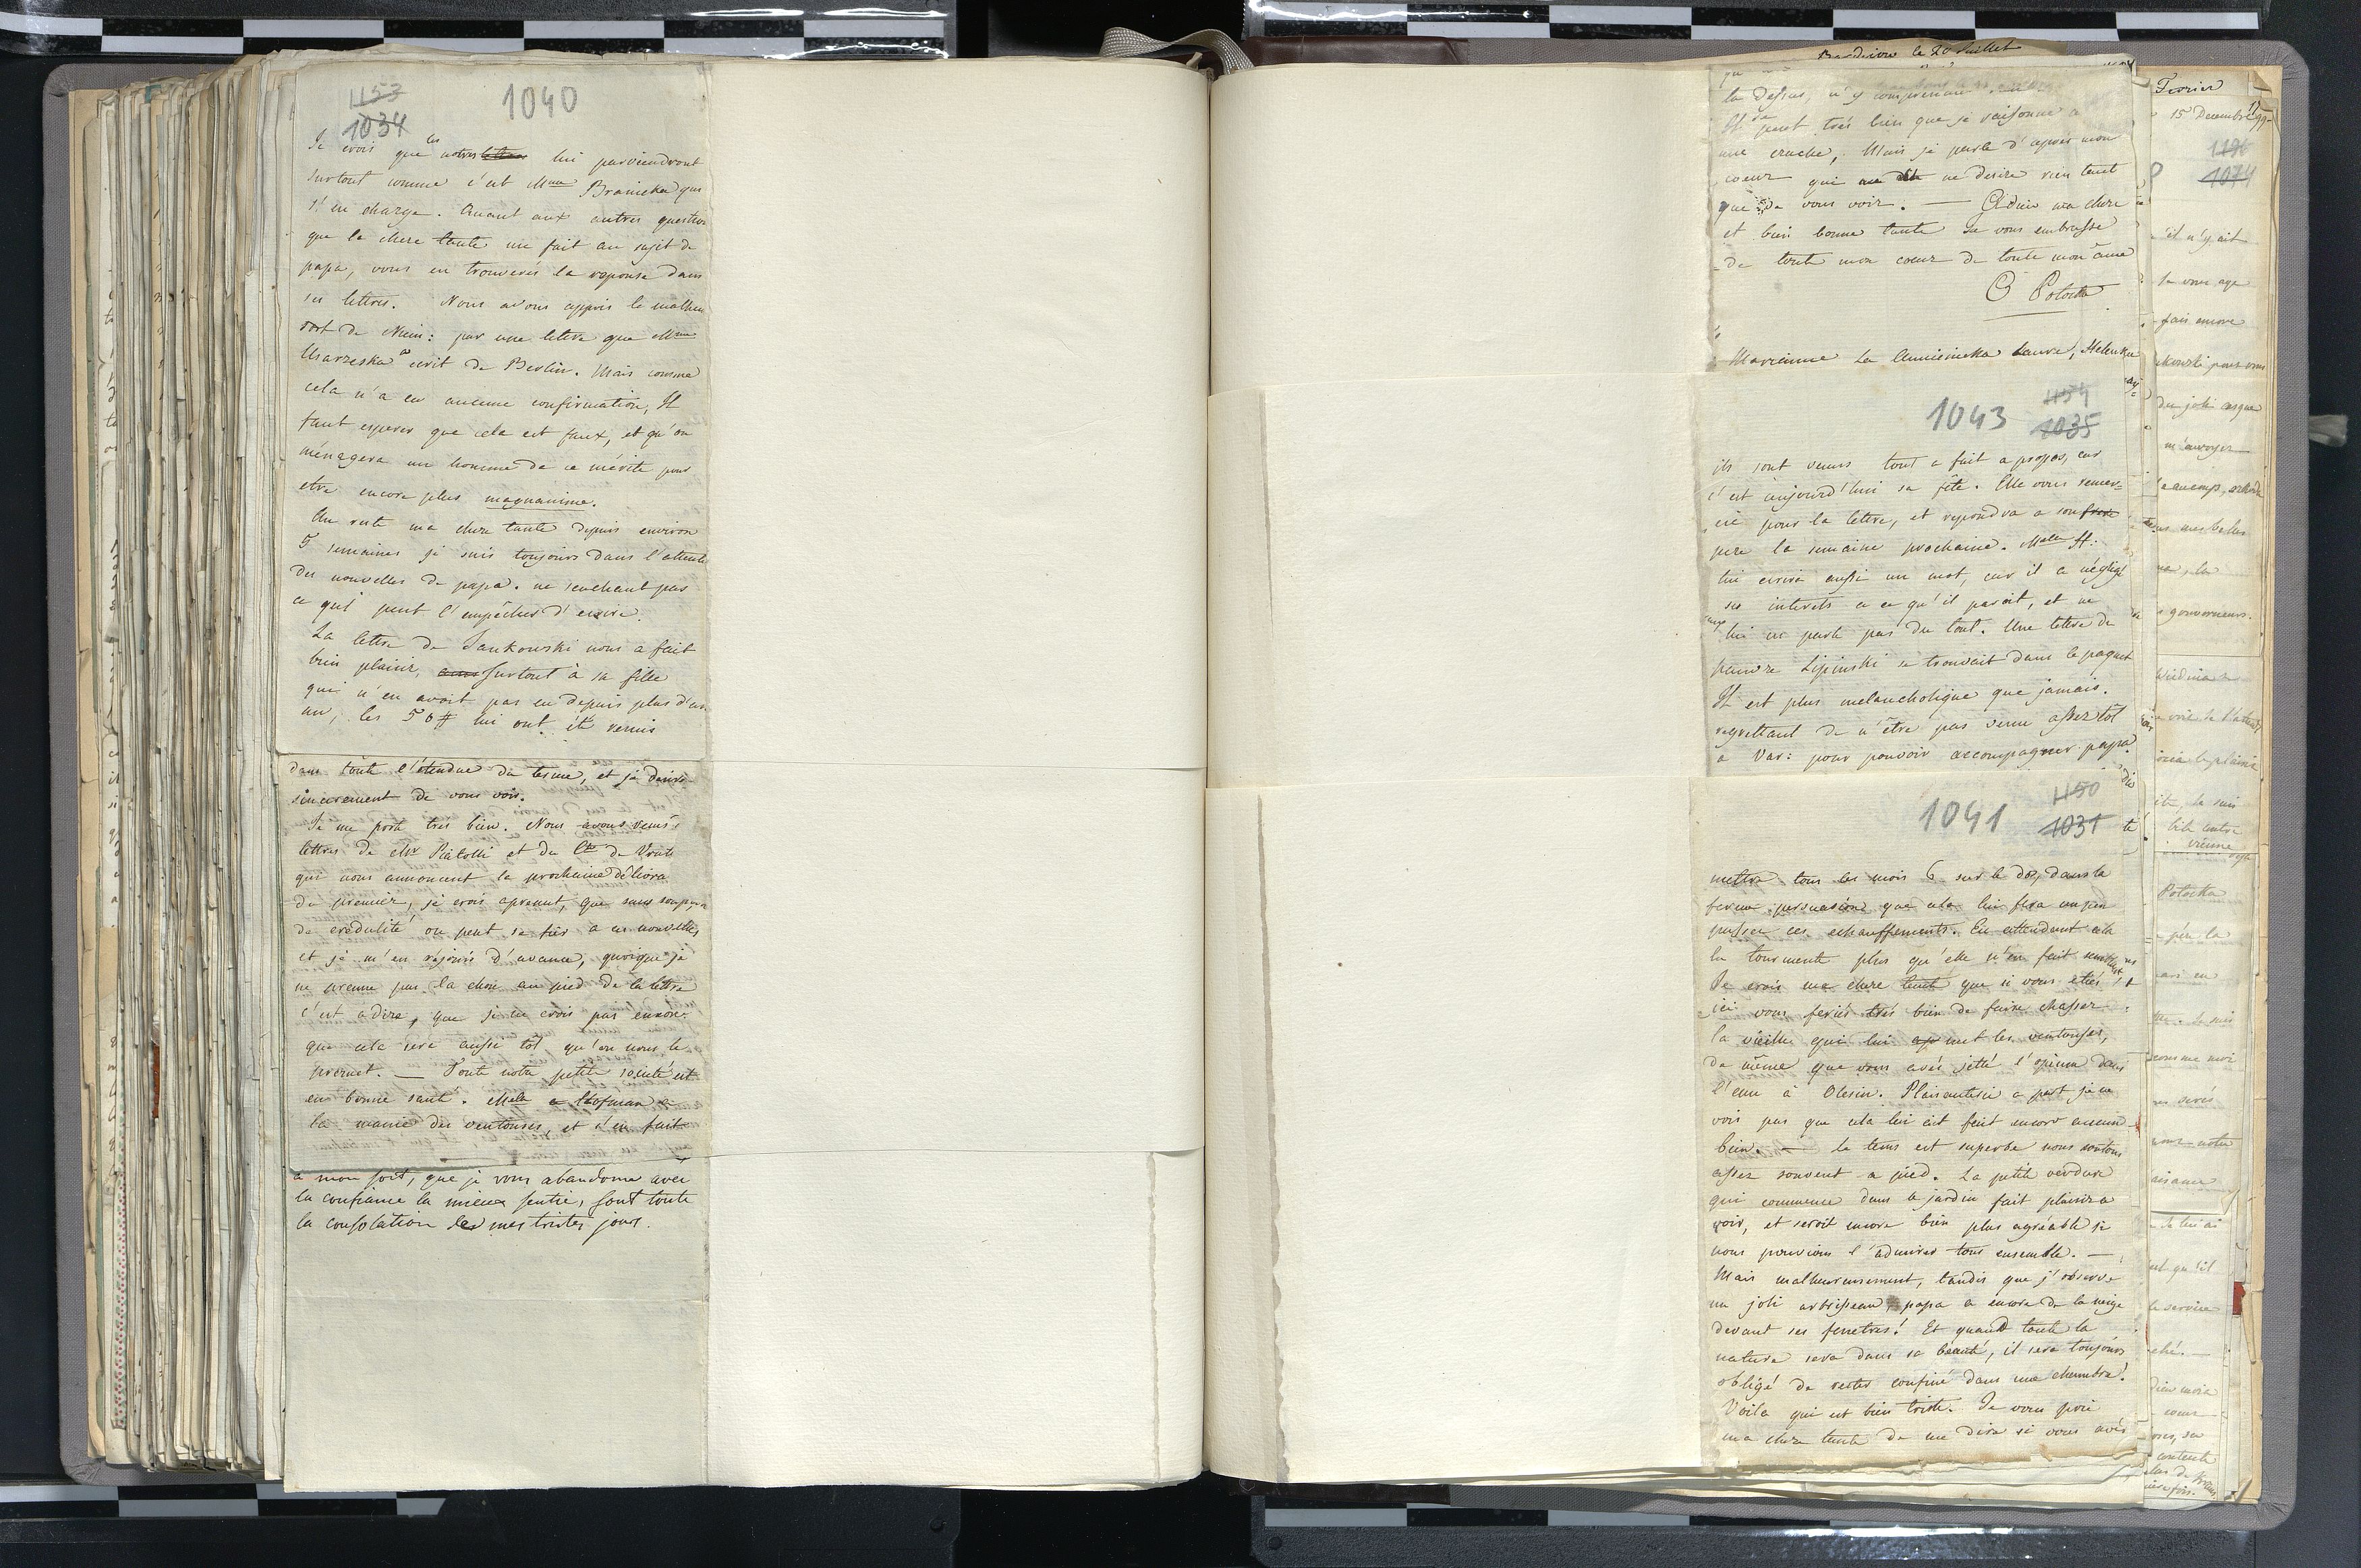 1153
1034
1040
Je crois que les notres lettres lui parviendront
surtout comme c'est Mme Branicka qui
s'en charge. Quant aux autres question
que la chere tante me fait au sujet de
papa, vous en trouverés la reponse dans
ses lettres. Nous avons appris le malheu
sort de Niem: par une lettre que Mme
a ecrit de Berlin. Mais comme
cela n'a eu aucune confirmation, Il
faut esperer que cela est faux, et qu'on
ménagera un homme de ce mérite pour
etre encore plus magnanime.
Au reste ma chere tante depuis environ
5 semaines je suis toujours dans l'attente
des nouvelles de papa. ne sachant pas
ce qui peut l'empêcher d'ecrire.
La lettre de Jankowski nous a fait
bien plaisir, surtout à sa fille
qui n'en avoit pas eu depuis plus d'un
an, les 50 # lui ont été remis
dans toute l'étendue du terme, et je desire
sincerement de vous voir.
Je me porte très bien. Nous avons
lettres de Mr Piatolli et du Cte de
qui nous annoncent la prochaine délivra
du premier, je crois apresent, que sans soupçon
de credulité on peut se fier a ces nouvelles
et je m'en réjouis d'avance, quoique je
ne prenne pas la chose au pied de la lettre
c'est a dire, que je ne crois pas encore
que cela sera aussi tôt qu'on nous le
promet. — Toute notre petite société est
en bonne santé. Melle Hofman a
la manie des ventouses, et s'en fait
a mon sort, que je vous abandonne avec
la confiance la mieux sentie, sont toute
la consolation de mes tristes jours.
Bardiow le 20 Juillet
la dessus, n'y comprenant
Il se peut très bien que je raisonne
une cruche, Mais je parle d'après mon
coeur qui ne desire rien tant
que de vous voir. — Adieu ma chere
et bien bonne tante Je vous embrasse
de toute mon coeur de toute mon âme
C Potocka
Marianne La Laure, Helenka
1043
1154
1035
ils sont venus tout a fait a propos, car
c'est aujourd'hui sa fête. Elle vous remer=
cie pour la lettre, et repondra a son frere
pere la semaine prochaine. Melle H:
lui ecrira aussi un mot, car il a négligé
ses interets a ce qu'il paroit, et ne
lui en parle pas du tout. Une lettre de
pauvre Lipinski se trouvait dans le paquet
Il est plus melancholique que jamais.
regrettant de n'être pas venu assez tôt
a Var: pour pouvoir accompagner papa
1041
1150
1031
mettre tous les mois 6 sur le dos, dans la
ferme persuasion que cela lui fera un peu
passer ces echauffements. En attendant cela
la tourmente plus qu'elle n'en fait
Je crois ma chere tante que si vous etiés
ici vous feriés très bien de faire chasser
la vieille qui lui met les ventouses,
de même que vous avés jetté l'opium dans
l'eau à Olesin. Plaisanterie a part je ne
vois pas que cela lui ait fait encore aucun
bien. — Le tems est superbe nous sortons
assez souvent a pied. La petite verdure
qui commence dans le jardin fait plaisir a
voir, et seroit encore bien plus agréable si
nous pouvions l'admirer tous ensemble. —
Mais malheureusement, tandis que j'observe
un joli arbrisseau, papa a encore de la neige
devant ses fenetres! Et quand toute la
nature sera dans sa beauté, il sera toujours
obligé de rester confiné dans une chambre!
Voila qui est bien triste. Je vous prie
ma chere tante de me dire si vous avés
Fevrier
15 Decembre 1799
1074
s'il n'y ait
fais encore
kowski pour vous
du joli casque
m'envoyer
mes belles
gouverneurs.
Potocka
comme moi
notre
Je lui ai
et qu'il
le service
coeur
contente